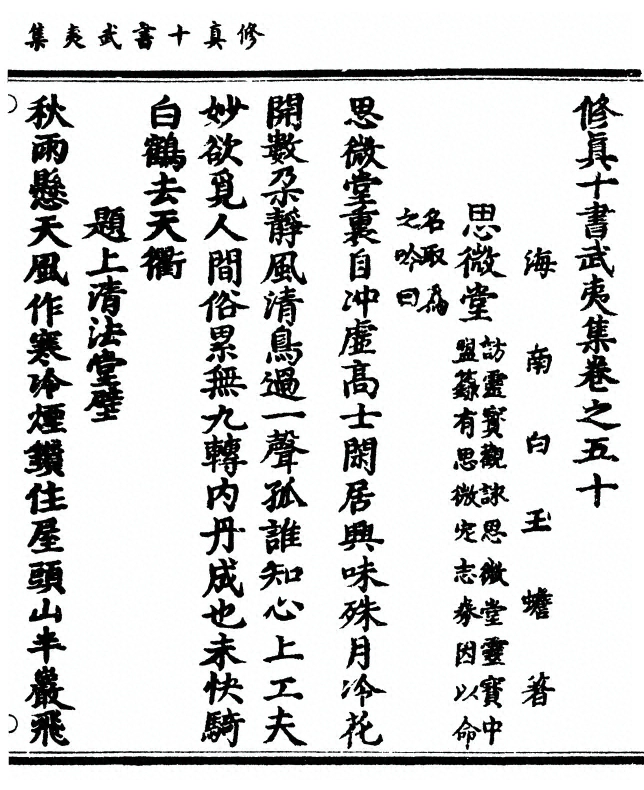 修真十書武夷集
修眞十書武夷集卷之五十
海南白玉蟾著
思微堂
訪靈寶觀詠思微堂靈寶中
盟籙有思微定志券因以命
名取爲
之吟曰
思微堂裏自冲虛高士閑居興味殊月冷花
開數朶靜風清鳥過一聲孤誰知心上工夫
妙欲覓人間俗累無九轉內丹成也未快騎
白鶴去天衢
題上清法堂壁
秋雨懸天風作寒冷煙鎖住屋頭山半巖飛